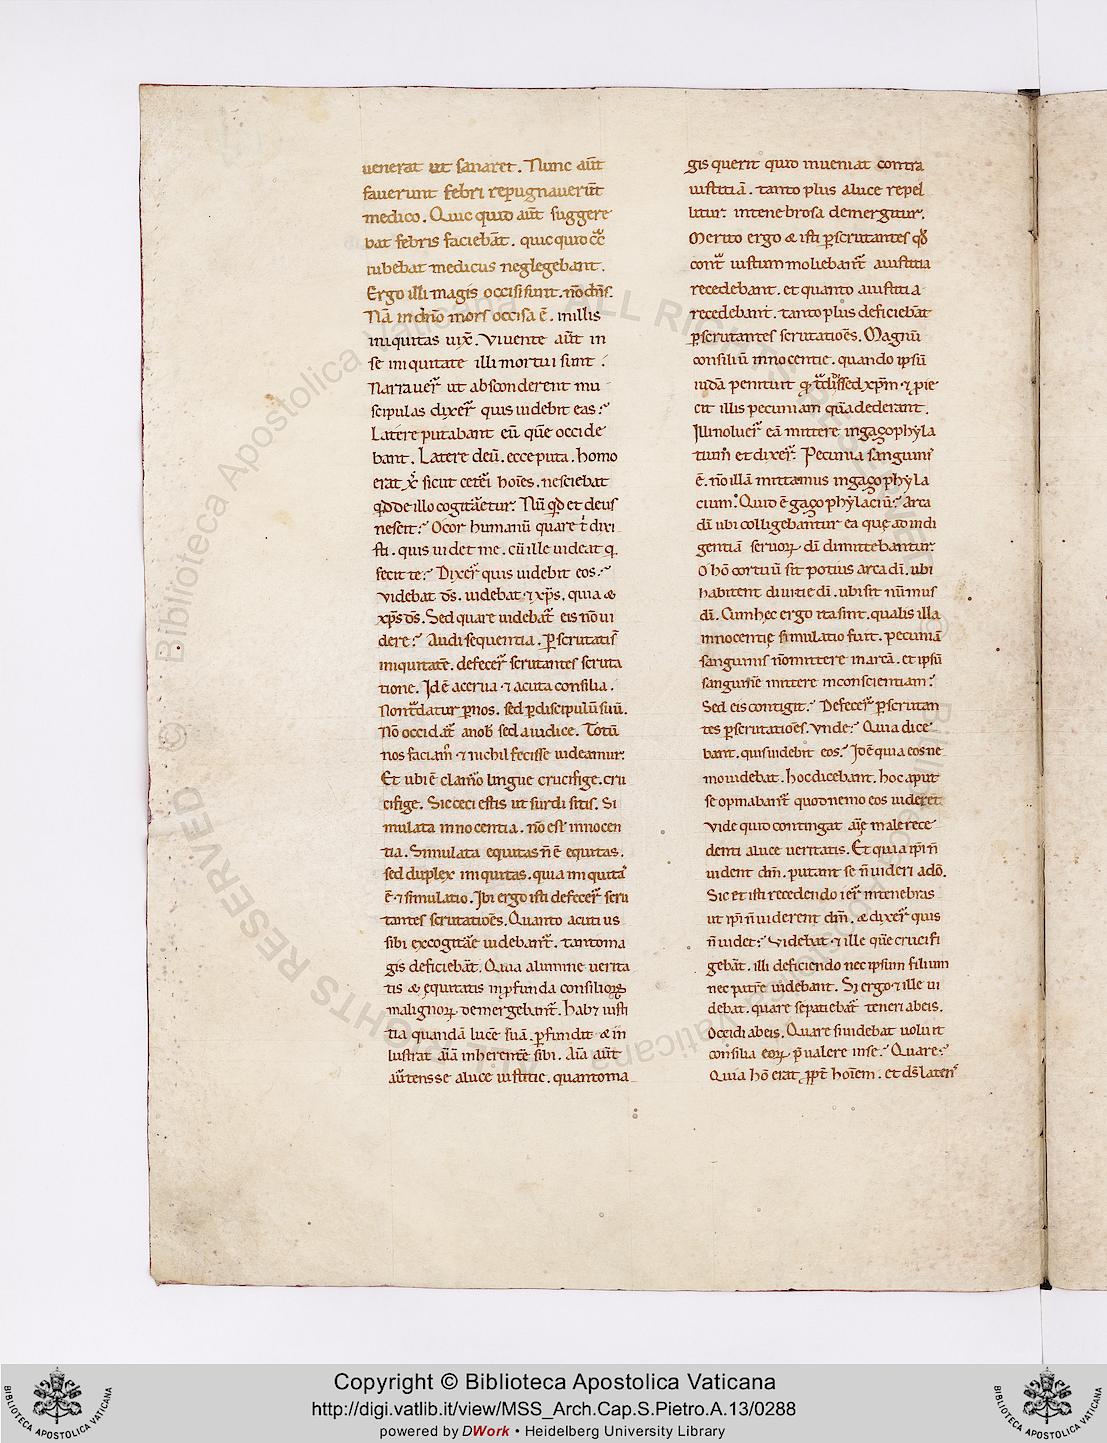 uenerat ut sanaret. Nunc aūt
fauerunt febri repugnauerūt
medico. Quic quid aūt suggere
bat febris faciebāt. quic quid
iubebat medicus neglegebant.
Ergo illi magis occisi sunt. nō dn̄s.
Nā in dn̄o mors occisa ē. in illis
iniquitas uix̄. Viuente aūt in
se iniquitate illi mortui sunt.
Narrauer̄ ut absconderent mu
scipulas dixer̄ quis uidebit eas?
Latere putabant eū quē occide
bant. Latere deū. ecce puta. homo
erat xp̄s sicut ceteri hoīes. nesciebat
qd de illo cogitaretur. Nū qd et deus
nescit? O cor humanū quare t̄ dixi
sti. quis uidet me. cū ille uideat q̄
fecit te? Dixer̄ quis uidebit eos?
Videbat ds̄. uidebat ⁊ xp̄s, quia &
xp̄s ds̄. Sed quare uidebat̄ eis nō ui
dere? Audi sequentia. Perscrutati s̄
iniquitatē. defecer̄ scrutantes scruta
tione. Id ē acerua ⁊ acuta consilia.
Non tradatur p nos. sed p discipulū suū.
Nō occidat̄ a nob̄ sed a iudice. Totū
nos faciam̄ ⁊ nichil fecisse uideamur.
Et ubi ē clamor lingue crucifige. cru
cifige. Sic ceci estis ut surdi sitis. Si
mulata innocentia. nō est innocen
tia. Simulata equitas n̄ ē equitas.
sed duplex iniquitas. quia iniquitas
ē ⁊ simulatio. Ibi ergo isti defecer̄ scru
tantes scrutatiōes. Quanto acutius
sibi excogitare uidebant̄. tanto ma
gis deficiebāt. Quia a lumine uerita
tis & ęquitatis in p̄funda consilioꝝ
malignoꝝ demergebant̄. Habꝫ iusti
tia quandā lucē suā. p̄fundit & in
lustrat aīā inherentē sibi. Aīa aūt
auertens se a luce iustitie. quanto ma
gis querit quid inueniat contra
iustitiā. tanto plus a luce repel
litur. in tenebrosa demergitur.
Merito ergo & isti p̄scrutantes qd
cont̄ iustum moliebant̄ a iustitia
recedebant. et quanto a iustitia
recedebant. tanto plus deficiebāt
p̄scrutantes scrutatiōes. Magnū
consiliū innocentie. quando ipsū
iudā penituit q tradidisset xp̄m. ⁊ pie
cit illis pecuniam quā dederant.
Illi noluer̄ eā mittere in gazophyla
tium et dixer̄. Pecunia sanguinis
ē. nō illā mittamus in gazophyla
cium. Quid ē gazophylaciū? Arca
dī ubi colligebantur ea quę ad indi
gentiā seruoꝝ dī dimittebantur.
O hō cor tuū sit potius arca dī. ubi
habitent diuitie dī. ubi sit nūmus
dī. Cum hęc ergo ita sint. qualis illa
innocentię simulatio fuit. pecuniā
sanguinis nō mittere in arcā. et ipsū
sanguinē mittere in conscientiam?
Sed eis contigit? Defecer̄ p̄scrutan
tes p̄scrutatiōes. Vnde? Quia dice
bant. quis uidebit eos? Id ē quia eos ne
mo uidebat. hoc dicebant. hoc aput
se opinabant̄ quod nemo eos uideret
Vide quid contingat aīę male rece
denti a luce ueritatis. Et quia ipsi n̄
uident dm̄. putant se n̄ uideri a dō.
Sic et isti recedendo ier̄ in tenebras
ut ipsi n̄ uiderent dm̄. & dixer̄ quis
n̄ uidet? Videbat ⁊ ille quē crucifi
gebāt. illi deficiendo nec ipsum filium
nec patrē uidebant. Si ergo ⁊ ille ui
debat. quare se patiebat̄ teneri ab eis.
Occidi ab eis. Quare si uidebat uoluit
consilia eoꝝ p̄ualere in se? Quare?
Quia hō erat ppt̄ hoīem. et ds̄ latens
Copyright © Biblioteca Apostolica Vaticana
http://digi.vatlib.it/view/MSS_Arch.Cap.S.Pietro.A.13/0288
powered by DWork • Heidelberg University Library